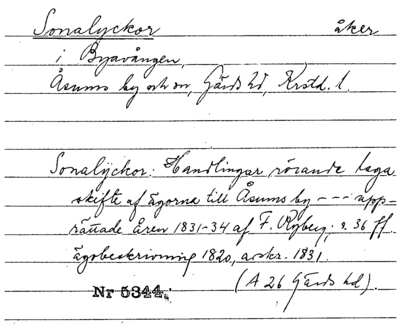 Sonalyckor åker
i Byavången,
Åsums by och sn, Gärds hd, Krstd. l.
Sonalyckor: Handlingar rörande laga
skifte af ägorna till Åsums by --- upp-
rättade åren 1831-34 af F. Ryberg; s. 36 ff.
ägobeskrivning 1820, avskr. 1831.
(A 26 Gärds hd).
Nr 5344.